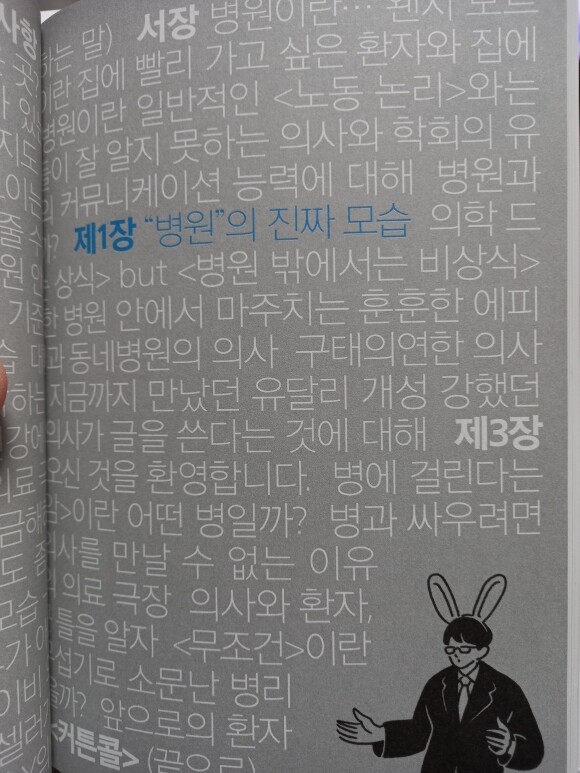 하는 말) 서장 병원이란… 왠지 모르
이란 집에 빨리 가고 싶은 환자와 집에
병원이란 일반적인 <노동 논리>와는
들이 잘 알지 못하는 의사와 학회의 유
의 커뮤니케이션 능력에 대해 병원과
가? 제1장 “병원”의 진짜 모습 의학 드
상식> but <병원 밖에서는 비상식>
한 병원 안에서 마주치는 훈훈한 에피
과 동네병원의 의사 구태의연한 의사
지금까지 만났던 유달리 개성 강했던
의사가 글을 쓴다는 것에 대해 제3장
오신 것을 환영합니다. 병에 걸린다는
이란 어떤 병일까? 병과 싸우려면
의사를 만날 수 없는 이유
의 의료 극장 의사와 환자,
틀을 알자 <무조건>이란
섭기로 소문난 병리
을까? 앞으로의 환자
<커튼콜> (끝으로)